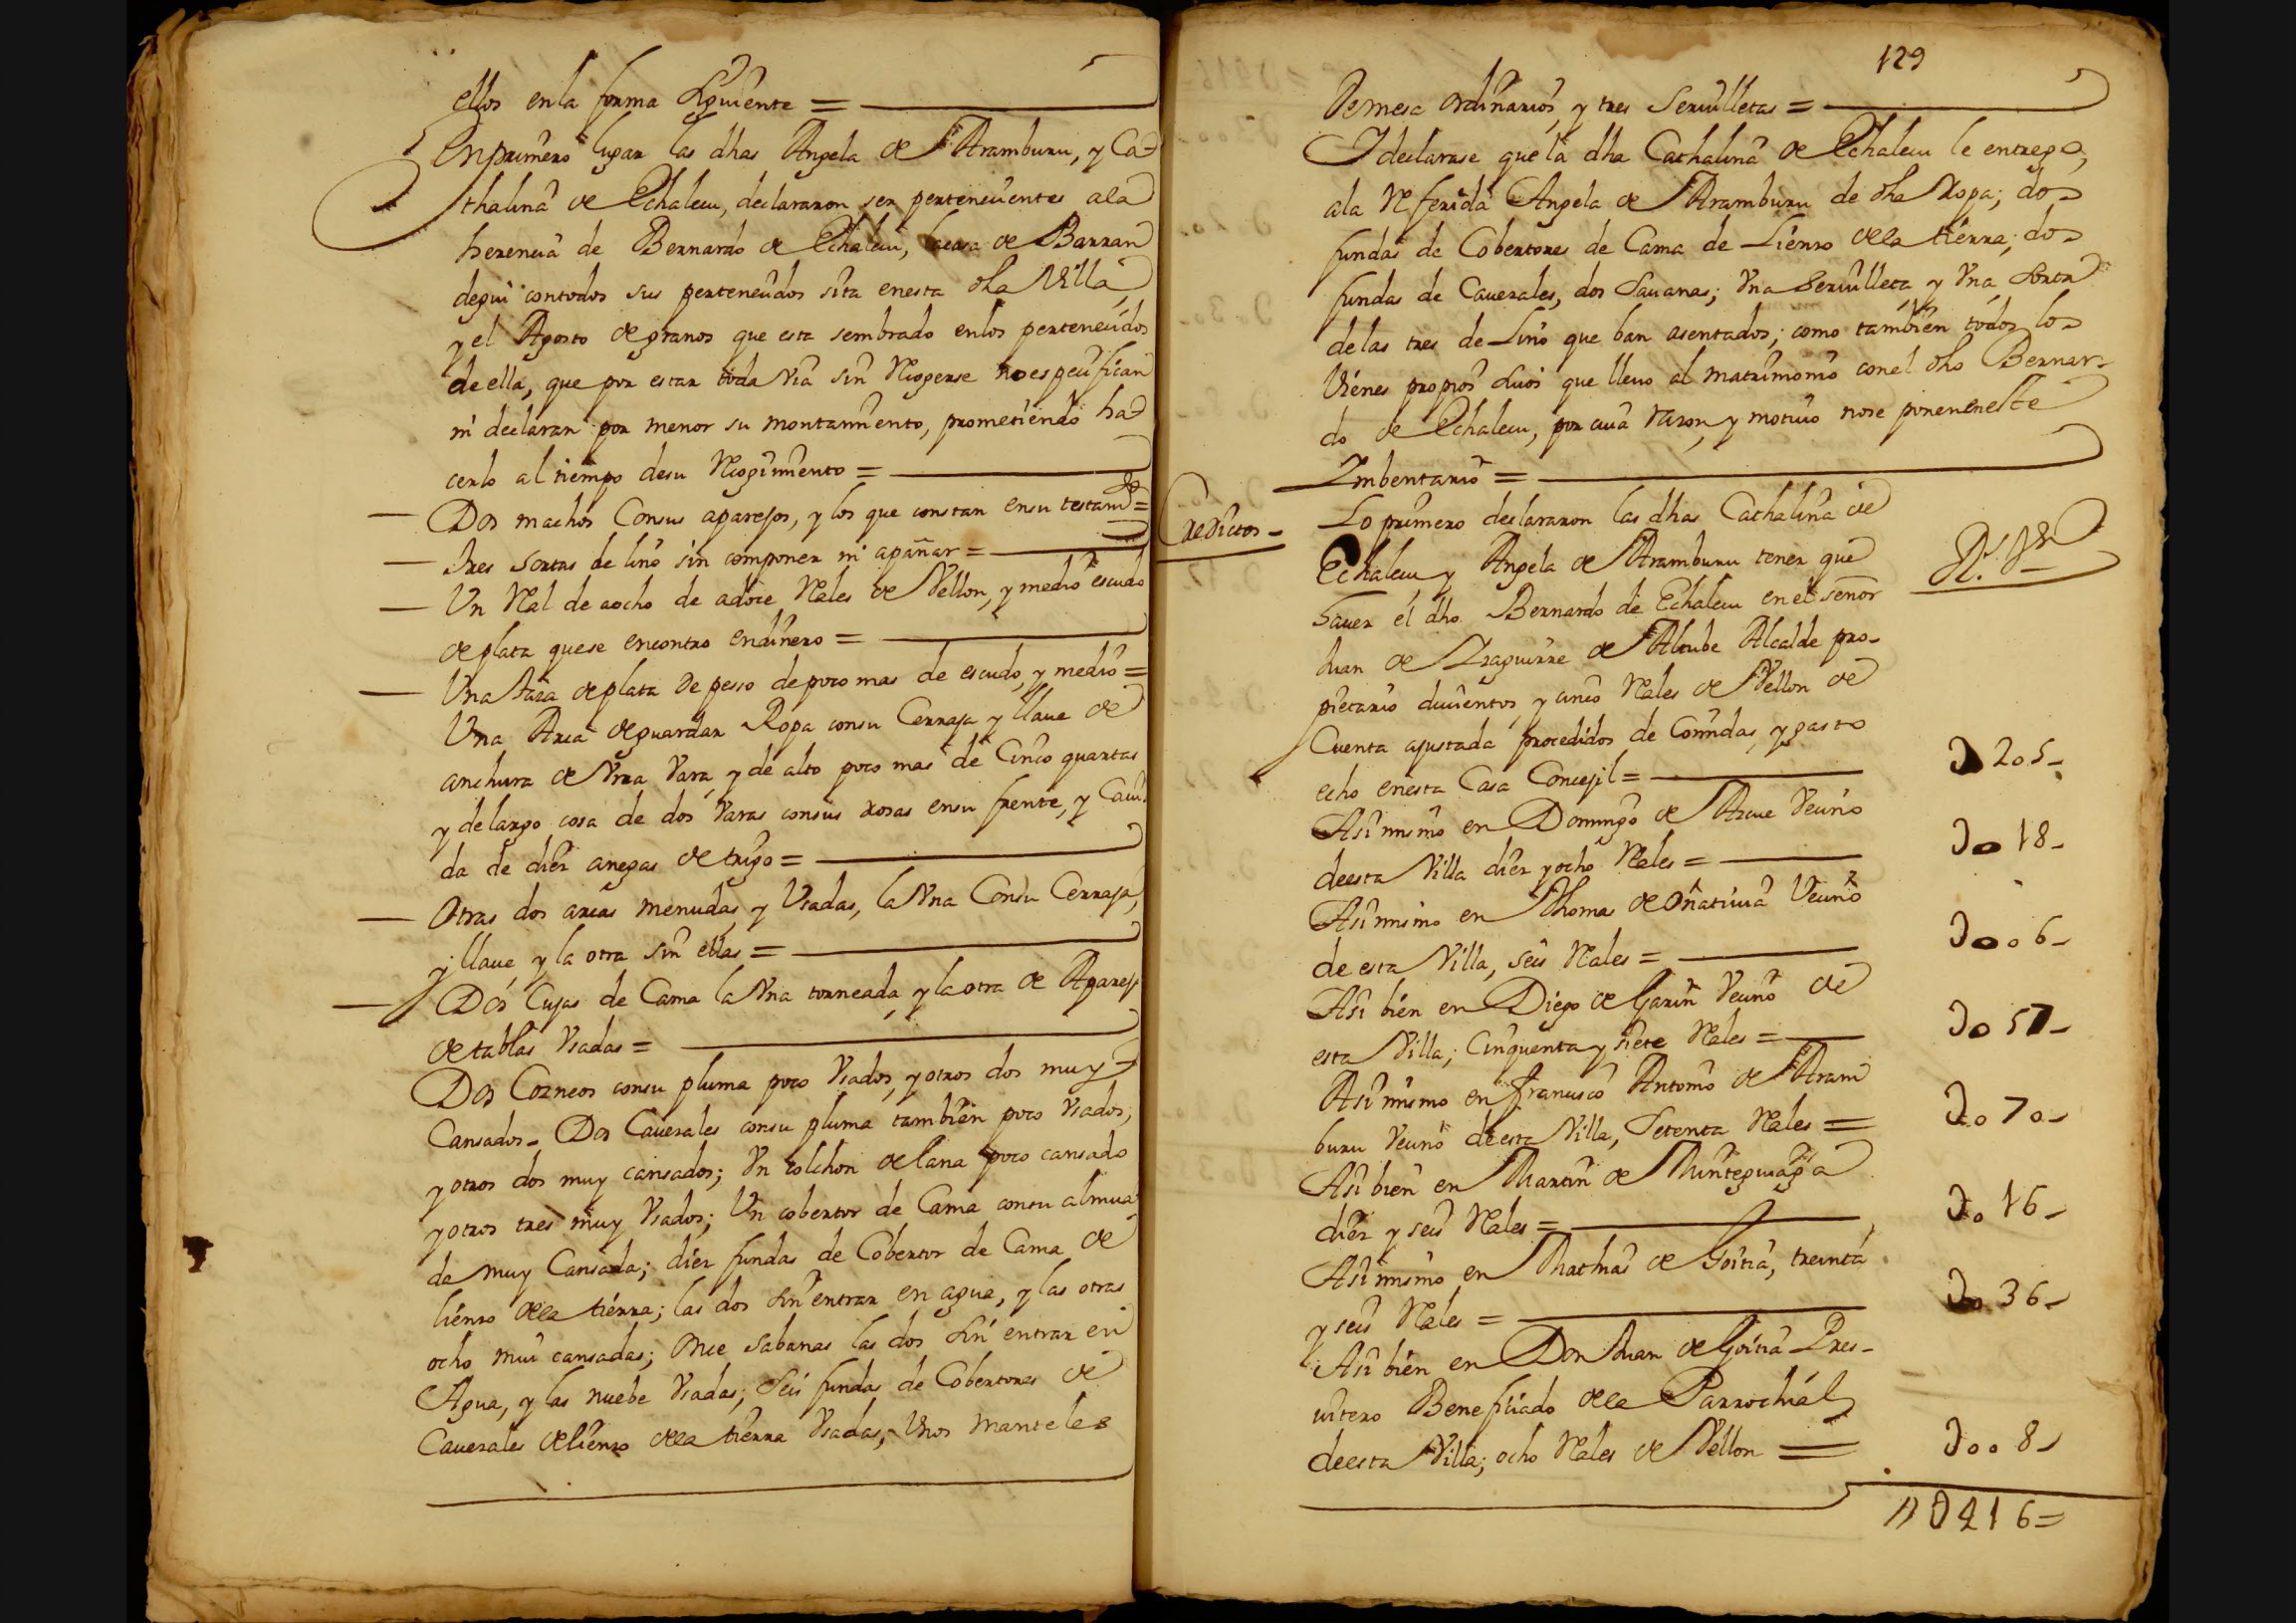 ellos enla forma siguiente =
En primero lugar las dhas Angela de Aramburu, y Ca-
thalina de Echalecu, declararon ser pertenecientes ala
herencia de Bernardo de Echalecu, la casa de Barran
degui contodos sus pertenecidos sita enesta dha Villa,
y el Agosto de granos que esta sembrado enlos pertenecidos
de ella, que por estar toda via sin Recogerse no especifican
ni declaran por menor su montamiento, prometiendo ha-
cerlo al tiempo desu Recogimiento =
Dos machos Consus aparejos, y los que constan ensu testamto =
Tres sortas de lino sin componer ni apañar =
Un Real de aocho de adoce Reales de Vellon, y medio escudo
de plata quese encontro endinero =
Una taza de plata de peso de poco mas de escudo, y medio =
Una Arca de guardar Ropa consu Cerraja y llave de
anchura de Vna Vara, y de alto poco mas de Cinco quartas
y delargo cosa de dos Varas consus rosas ensu frente, y Cavi-
da de diez anegas de trigo =
Otras dos arcas menudas, y Vsadas, la Vna Consu Cerraja,
y llave y la otra sin ellas =
Dos Cujas de Cama la Vna torneada, y la otra de Aparejo
de tablas Vsadas =
Dos Cozneos consu pluma poco Vsados, y otros dos muy
Cansados - Dos Cavezales consu pluma tambien poco Vsados,
y otros dos muy cansados; Vn colchon de lana poco cansado
y otros tres muy Vsados; Un cobertor de Cama consu almua
da muy Cansada; diez fundas de Cobertor de Cama de
lienzo dela tierra; las dos sin entrar en agua, y las otras
ocho mui cansadas; Once sabanas las dos sin entrar en
Agua, y las nuebe Vsadas; Seis fundas de Cobertores de
Cavezales de lienzo dela tierra Vsadas; Unos manteles
129
Demesa ordinarios, y tres Servilletas =
I declarase que la dha Cathalina de Echalecu le entrego,
ala Referida Angela de Aramburu de dha Ropa; dos
fundas de Cobertores de Cama de Lienzo dela tierra; dos
fundas de Cavezales, dos Savanas; Vna Servilleta y Vna Sorta
delas tres de Lino que ban asentados; como tambien todos los
Vienes propios suios que llevo al matrimonio conel dho Bernar-
do de Echalecu, por cuia razon, y motivo nose ponen eneste
Imbentario =
Creditos -
Lo primero declararon las dhas Cathalina de
Echalecu y Angela de Aramburu tener que
haver el dho Bernardo de Echalecu en el señor
Juan de Yraguirre de Altube Alcalde pro-
pietario ducientos, y cinco Reales de Vellon de
Cuenta ajustada procedidos de Comidas, y gasto
echo enesta Casa Concejil =
Rs. Vn
D 205 -
Asimismo en Domingo de Arcue Vecino
deesta Villa diez yocho Reales =
Do 18 -
Asimismo en Thomas de Oñativia Vecino
de esta Villa, seis Reales =
Doo 6 -
Asi bien en Diego de Garin Vecino de
esta Villa; Cinquenta y siete Reales =
Do 57 -
Asimismo en Francisco Antonio de Aram
buru Vecino deesta Villa, Setenta Reales =
Do 70 -
Asi bien en Martin de Munteguiaga
diez y seis Reales =
Do 16 -
Asimismo en Mathias de Goitia, treinta
y seis Reales =
Do 36 -
Asi bien en Don Juan de Goitia Pres-
vitero Beneficiado dela Parrochial
deesta Villa; ocho Reales de Vellon =
Doo 8 -
D416 =